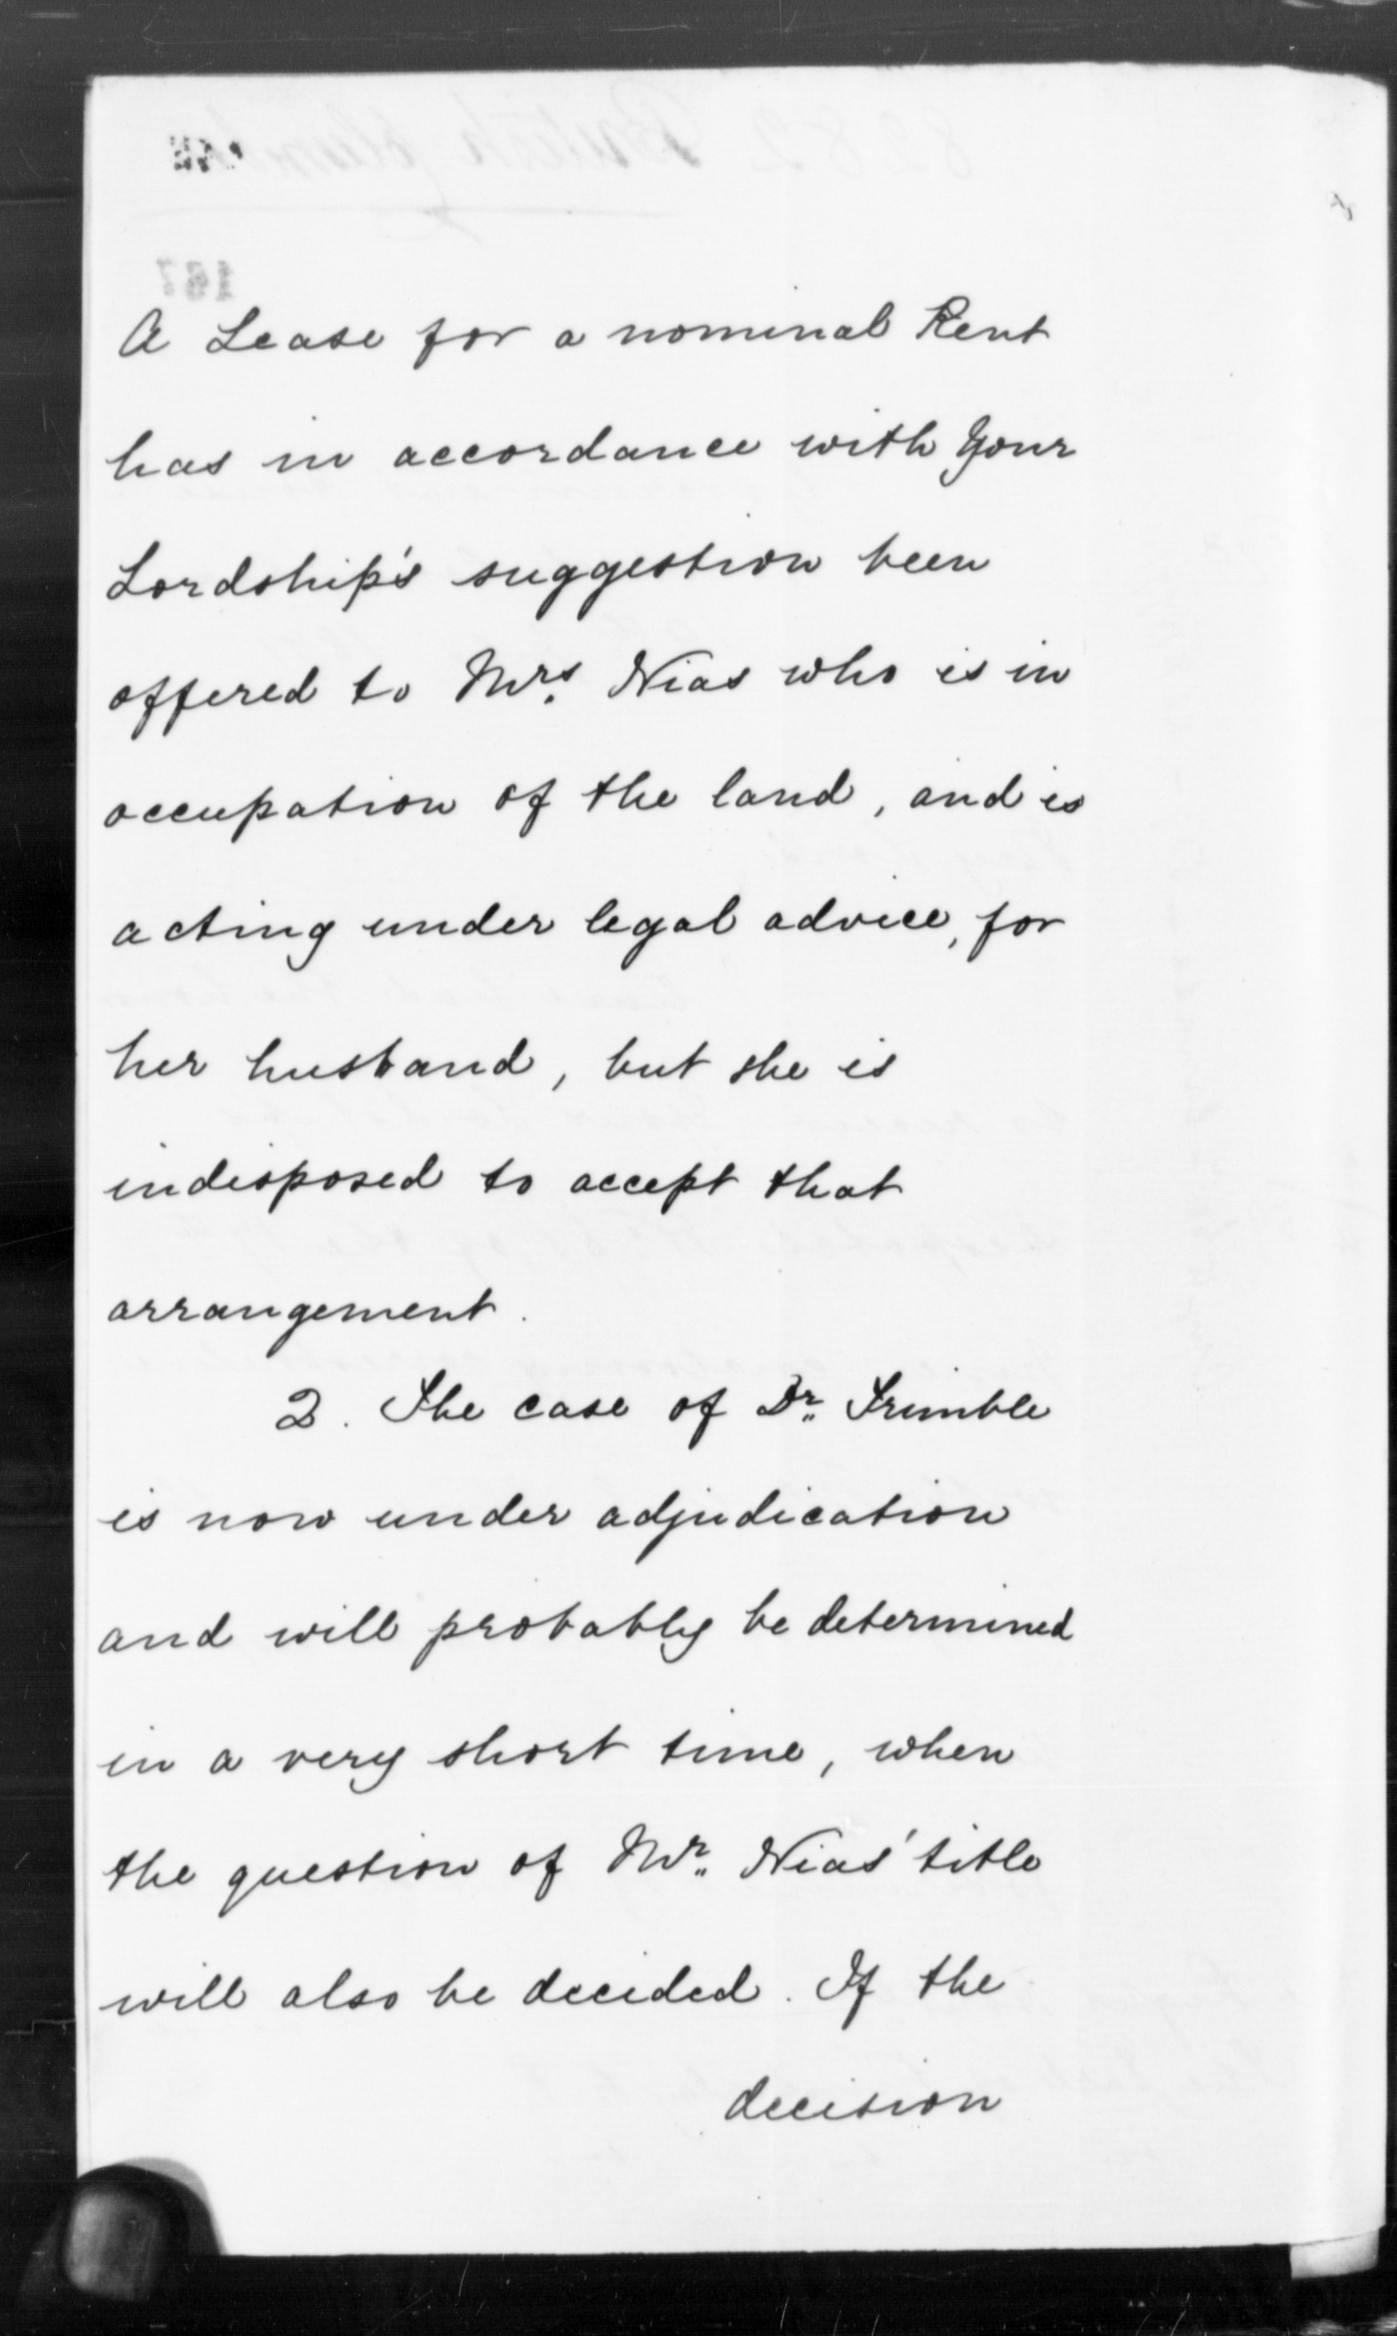 A Lease for a nominal Rent
has in accordance with Your
Lordship's suggestion been
offered to Mrs. Nias who is in
occupation of the land, and is
acting under legal advice, for
her husband, but she is
indisposed to accept that
arrangement.
2. The case of Dr. Trimble
is now under adjudication
and will probably be determined
in a very short time, when
the question of Mr. Nias' title
will also be decided. If the
decision